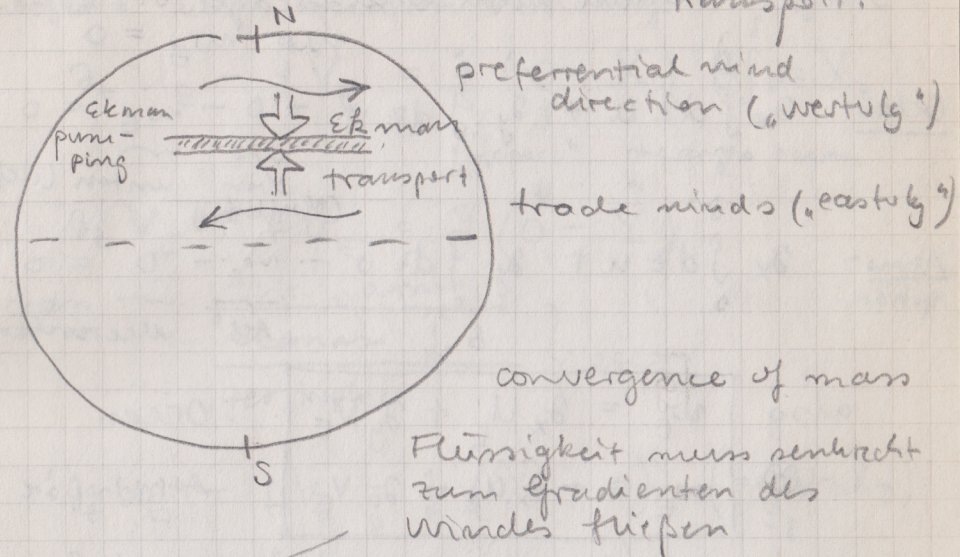 Transport.
N
preferrential wind
direction („westerly")
Ekman
pum-
ping
Ekman
transport
trade winds („easterly")
convergence of mass
S
Flüssigkeit muss senkrecht
zum Gradienten des
Windes fließen